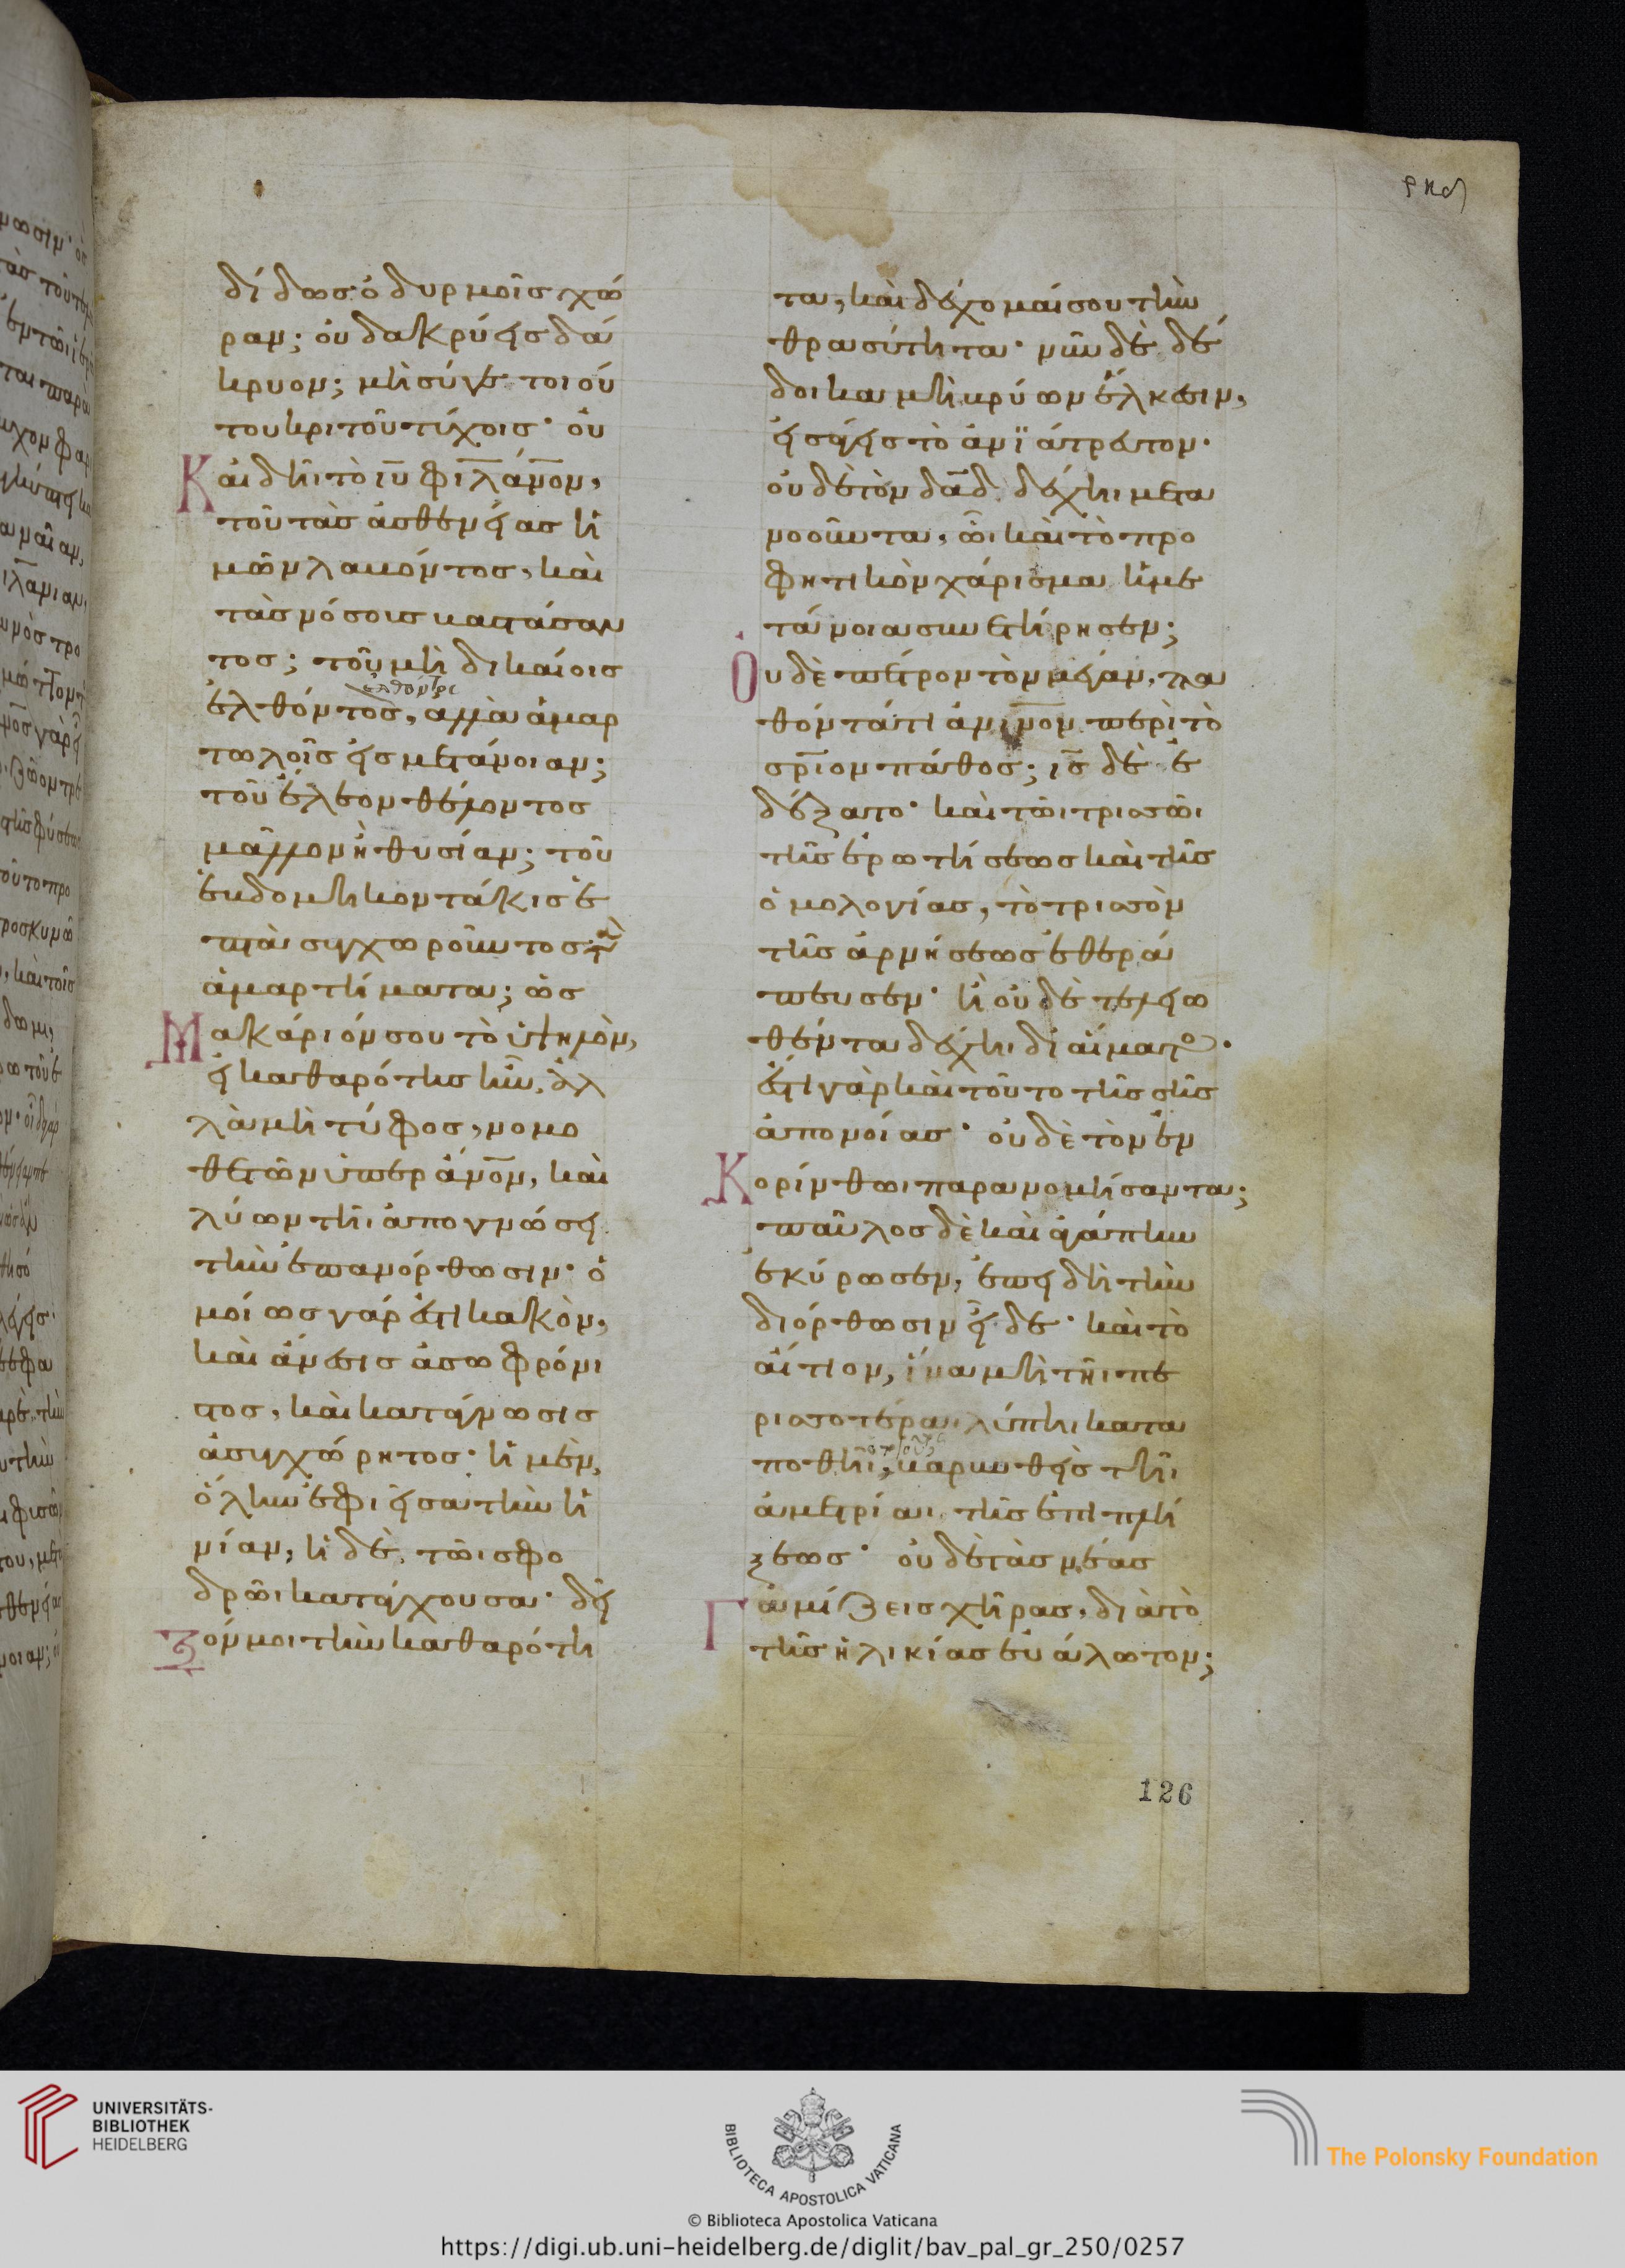 ρκϛ
δίδως ὀδυρμοῖς χώ
ραν; οὐ δακρύεις δά
κρυον; μὴ σύγε τοιού
του κριτοῦ τύχοις· οὐ
Καιδῆι τὸ ἰ̅υ̅ φιλάν̅ον,
τοῦ τὰς ἀσθενείας ἡ
μῶν λαβόντος, καὶ
τὰς νόσους βαστάσαν
τος; τοῦ μὴ δικαίοις
ἐλθόντος, ἀλλὰ ἁμαρ
τωλοῖς εἰς μετάνοιαν;
τοῦ ἔλεον θέλοντος
μᾶλλον ἢ θυσίαν; τοῦ
ἑβδομηκοντάκις ἑ
πτὰ συγχωροῦντος τὰ
ἁμαρτήματα; ὡς
Μακάριόν σου τὸ ὑψηλὸν,
εἰ καθαρότης ἦν, ἀλ
λὰ μὴ τύφος, νομο
θετῶν ὑπὲρ ἄν̅ο̅ν, καὶ
λύων τῆι ἀπογνώσει
τὴν ἐπανόρθωσιν· ὁ
μοίως γάρ ἐστι κακὸν,
καὶ ἄνεσις ἀσωφρόνι
στος, καὶ κατάγνωσις
ἀσυγχώρητος· ἡ μὲν,
ὅλην ἐφιεῖσα τὴν ἡ
νίαν, ἡ δὲ, τῶι σφο
δρῶι κατάγχουσα· δεῖ
Ξόν μοι τὴν καθαρότη
τα, καὶ δέχομαί σου τὴν
θρασύτητα· νῦν δὲ δέ
δοικα μὴ βρύων ἕλκεσιν,
εἰσάγεις τὸ ἀνϊάτρευτον·
οὐδὲ τὸν δᾱδ δέχηι μετα
νοοῦντα, ὧι καὶ τὸ προ
φητικὸν χάρισμα ἡ με
τάνοια συνετήρησεν;
Οὐδὲ πέτρον τὸν μέγαν, πα
θόντά τι ἀνι̅νον περὶ τὸ
σ̅ρ̅ιον πάθος; ι̅ς̅ δὲ ἐ
δέξατο· καὶ τῶι τρισσῶι
τῆς ἐρωτήσεως καὶ τῆς
ὁμολογίας, τὸ τρισσὸν
τῆς ἀρνήσεως ἐθερά
πευσεν· ἢ οὐδὲ τελειω
θέντα δέχηι δι αἵματος·
ἔστι γὰρ καὶ τοῦτο τῆς σῆς
ἀπονοίας· οὐδὲ τὸν ἐν
Κορίνθωι παρανομήσαντα;
παῦλος δὲ καὶ ἀγάπην
ἐκύρωσεν, ἐπειδὴ τὴν
διόρθωσιν εἶδε· καὶ τὸ
αἴτιον, ἵνα μὴ τῆι πε
ρισσοτέραι λύπηι κατα
ποθῆι, βαρυνθεὶς τῆι
ἀμετρίαι τῆς ἐπιπλή
ξεως· οὐδὲ τὰς νέας
Γαμίζεις χήρας, διὰ τὸ
τῆς ἡλικίας εὐάλωτον;
126
UNIVERSITÄTS-
BIBLIOTHEK
HEIDELBERG
BIBLIOTECA APOSTOLICA VATICANA
The Polonsky Foundation
© Biblioteca Apostolica Vaticana
https://digi.ub.uni-heidelberg.de/diglit/bav_pal_gr_250/0257